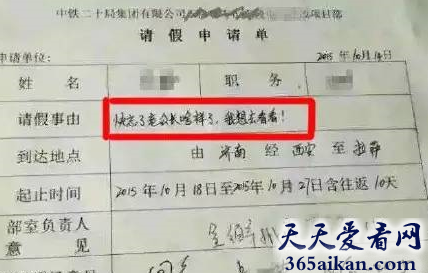 中铁二十局集团有限公司 项目部
请假申请单
申请单位: 2015年10月14日
姓名 职务
请假事由 快忘了老公长啥样了,我想去看看!
到达地点 由 济南 经 西安 至 拉萨
起止时间 2015年10月18日至2015年10月27日含往返10天
部室负责人
意见
天天爱看网
365aikan.com